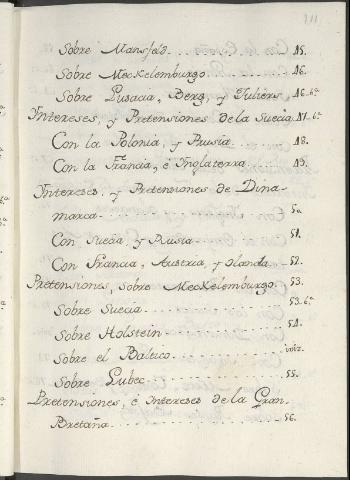 Sobre Mansfeld. 45.
Sobre Meckelemburgo. 46.
Sobre Lusacia, Berg, y Juliers 46.6ª
Intereses, y Pretensiones de la Suecia. 47.6ª
Con la Polonia, y Rusia. 48.
Con la Francia, é Inglaterra. 49.
Intereses, y Pretensiones de Dina-
marca. 50
Con Suecia, y Rusia. 51.
Con Francia, Austria, y Olanda. 52.
Pretensiones, sobre Meckelemburgo. 53.
Sobre Suecia. 53.6ª
Sobre Holstein. 54.
Sobre el Baltico. ivi.
Sobre Lubec. 55.
Pretensiones, é Intereses de la Gran
Bretaña. 56.